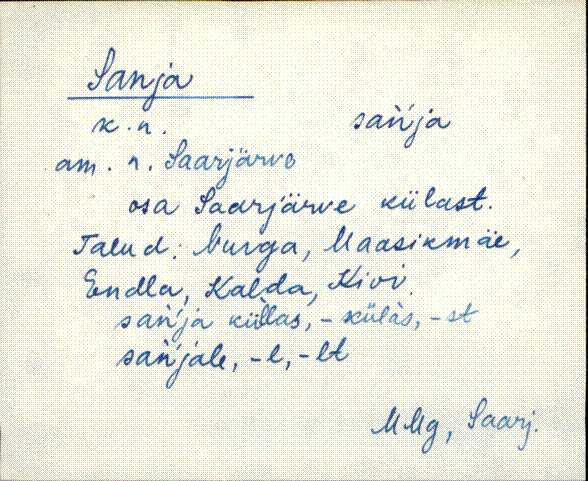 Sanja
k. n. sań̀ja
am. n. Saarjärve
osa Saarjärve külast.
Talud: Nurga, Maasikmäe,
Endla, Kalda, Kivi.
sań̀ja küllas, -külàs, -st
sań̀jale, -l, -lt
MMg, Saarj.